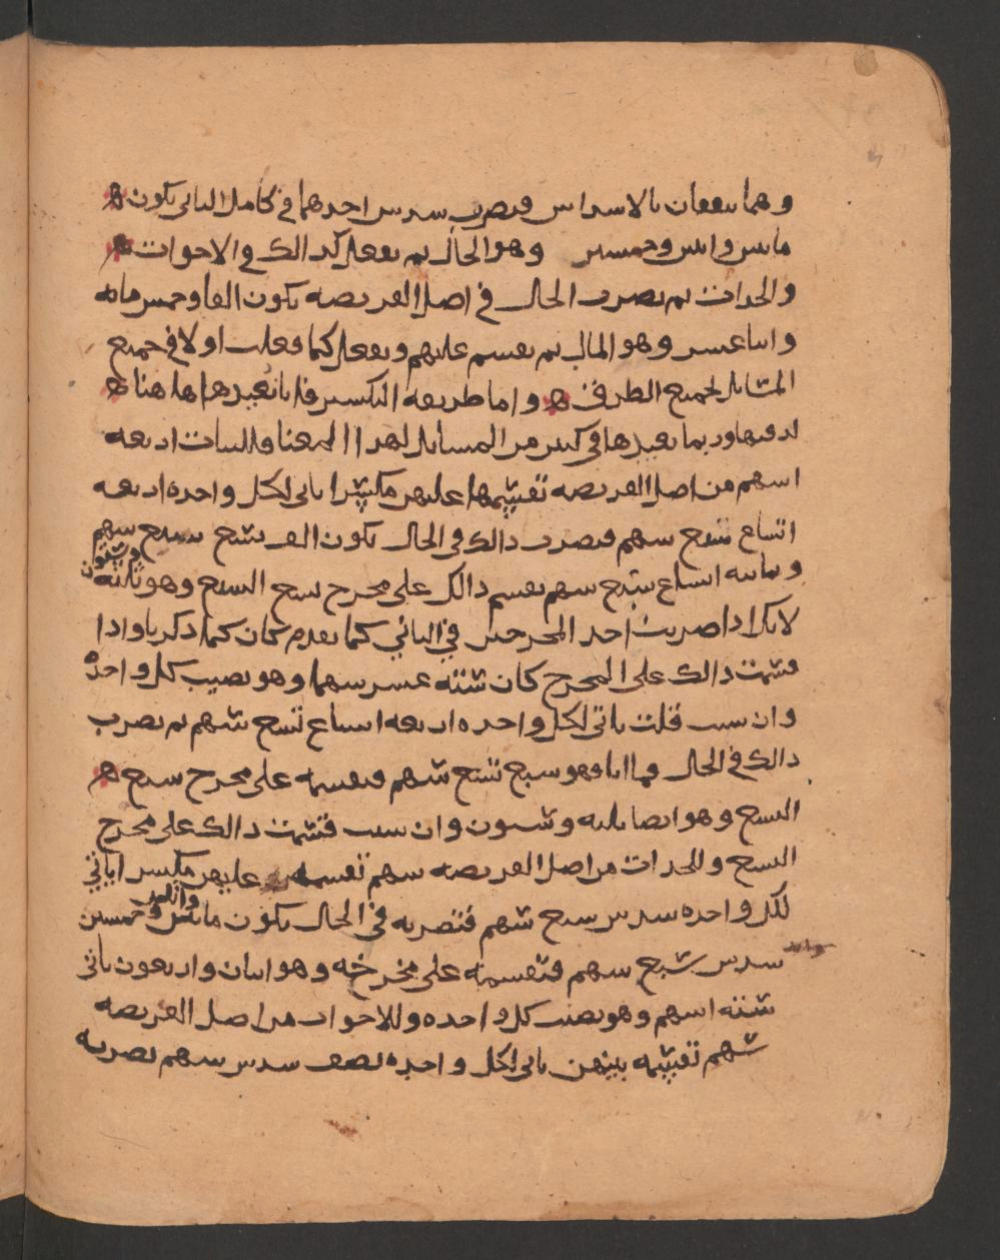 وهما يتفقان بالاسداس فتضرب سدس احدهما في كامل الثاني يكون
مايتين واثنين وخمسين وهو الحال ثم تفعل كذالك في الاخوات
والجدات ثم تضرب الحال في اصل الفريضه يكون الفا وخمس مائه
واثنا عشر وهو المال ثم تقسم عليهم وتفعل كما فعلت اولا في جميع
المسايل لجميع الطرق واما طريقه التكسير فانا نعيدها هاهنا
لدقتها وربما نعيدها في كثير من المسايل لهذا المعنا فللبنات اربعه
اسهم من اصل الفريضه تقسمها عليهن مكسرا ياتي لكل واحده اربعه
اتساع تسع سهم فتضرب ذالك في الحال يكون الف تسع سبع سهم
وثمانيه اتساع سبع سهم تقسم ذالك على مخرج سبع التسع وهو ثلثه وستون
لانك اذا ضربت احد المخرجين في الثاني كما تقدم كان كما ذكرنا واذا
قسمت ذالك على المخرج كان سته عشر سهما وهو نصيب كل واحده
وان شيت قلت ياتي لكل واحده اربعه اتساع تسع سهم ثم تضرب
ذالك في الحال فما اتا فهو سبع تسع سهم فتقسمه على مخرج سبع
التسع وهو ايضا ثلثه وستون وان شيت قسمت ذالك على مخرج
التسع وللجدات من اصل الفريضه سهم تقسمه عليهن مكسرا ياتي
لكل واحده سدس سبع سهم فتضربه في الحال يكون مايتين واثنين وخمسين
سدس سبع سهم فتقسمه على مخرجه وهو اثنان واربعون ياتي
سته اسهم وهو نصيب كل واحده وللاخوات من اصل الفريضه
سهم تقسمه بينهن ياتي لكل واحده نصف سدس سهم تضربه